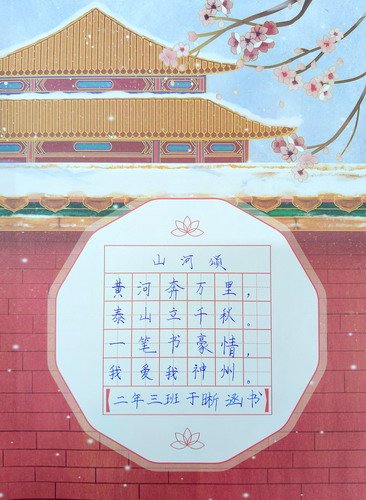 山河颂
黄河奔万里，
泰山立千秋。
一笔书豪情，
我爱我神州。
【二年三班于晰涵书】